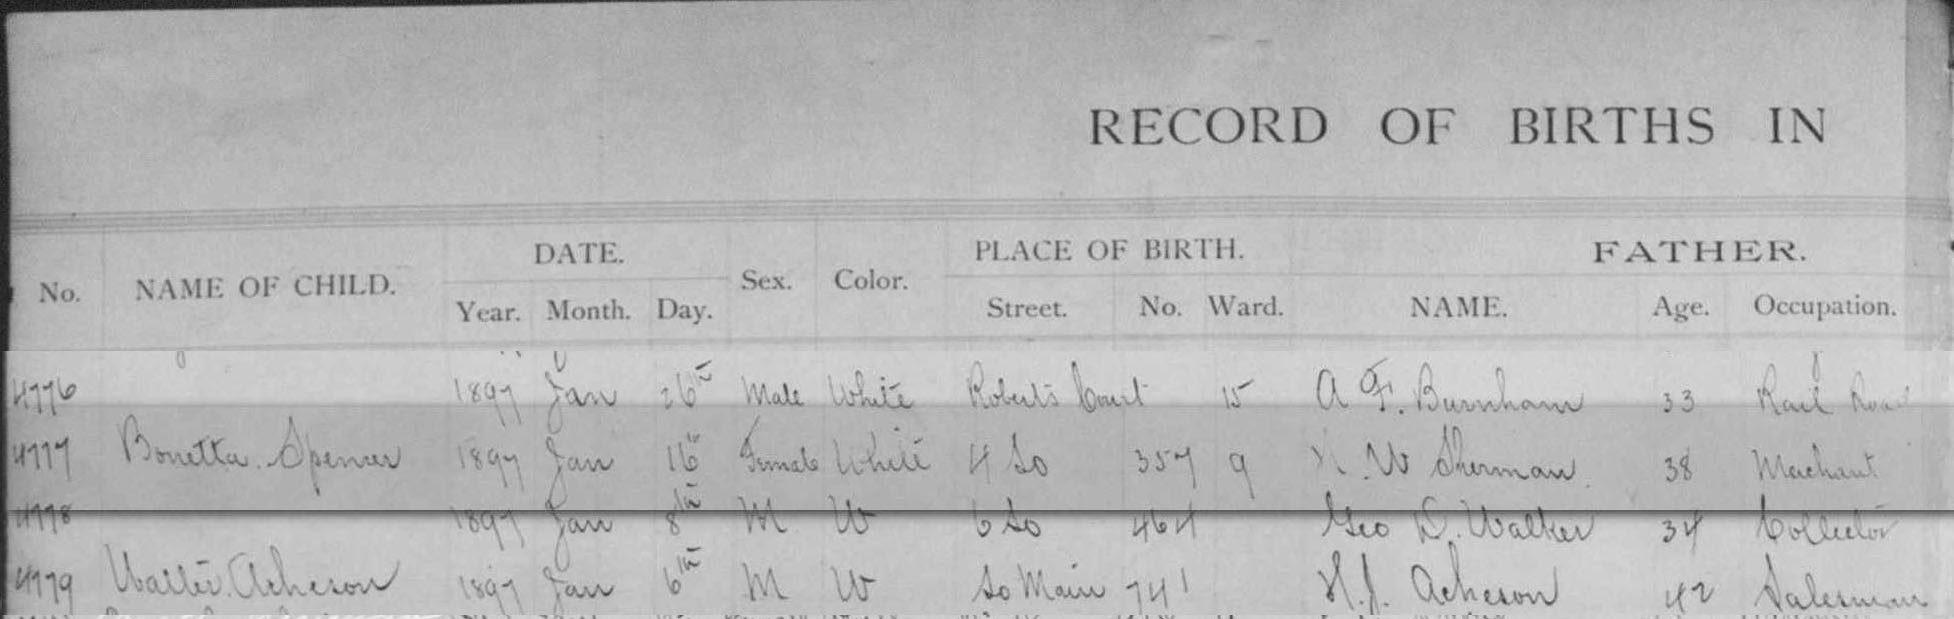 RECORD OF BIRTHS IN
DATE. PLACE OF BIRTH. FATHER.
No. NAME OF CHILD. Sex. Color.
Year. Month. Day. Street. No. Ward. NAME. Age. Occupation.
4776 1897 Jan 26th Male White Roberts Court 15 A F. Burnham 33 Rail Road
4777 Bonetta Spencer 1897 Jan 16th Female White 4 So 357 9 W Sherman 38 Machant
4778 1897 Jan 8th M W 6 So 464 Geo D. Walker 34 Collector
4779 Walter Acheson 1897 Jan 6th M W So Main 741 H.J. Acheson 42 Salesman